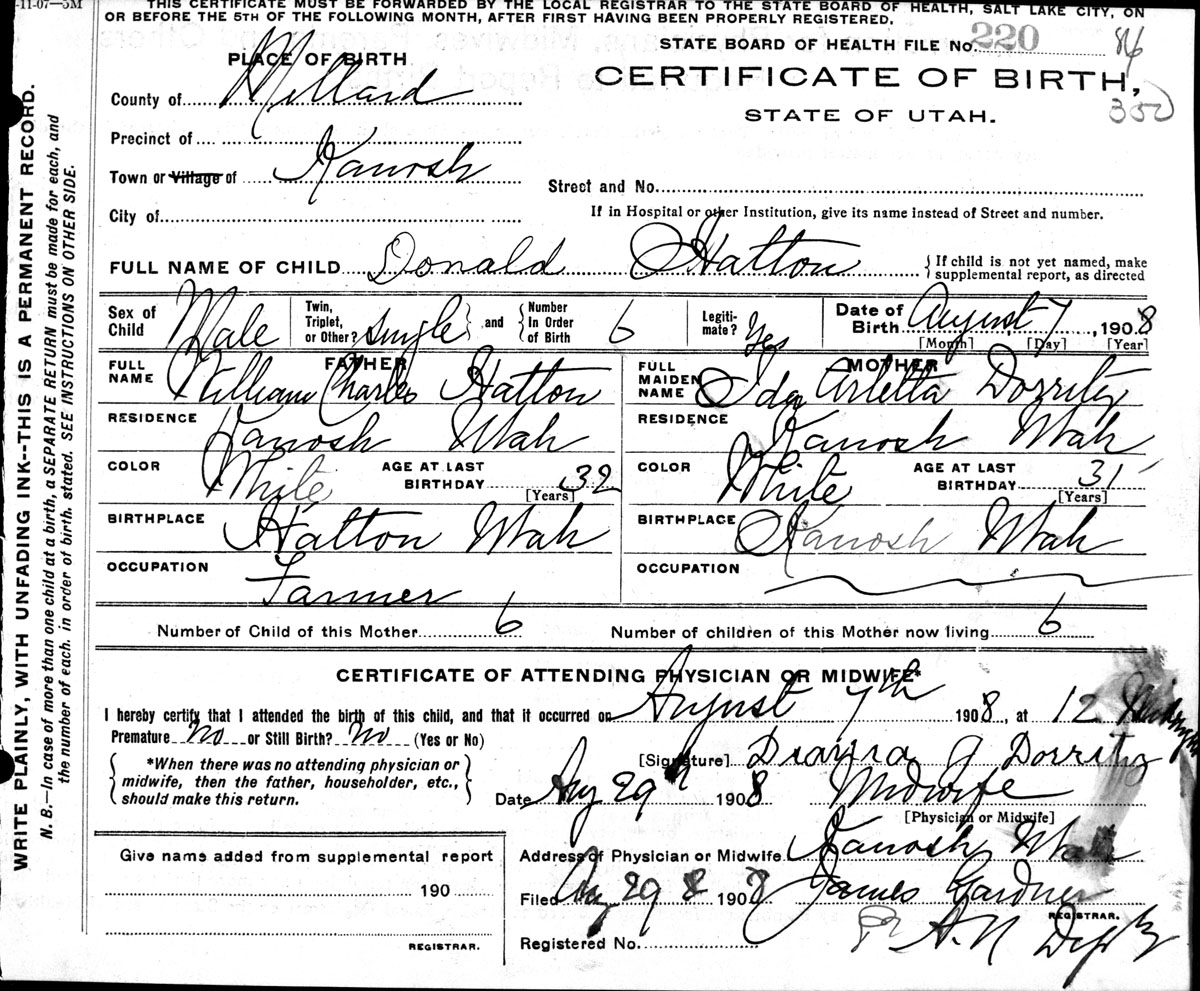 -11-07—5M
THIS CERTIFICATE MUST BE FORWARDED BY THE LOCAL REGISTRAR TO THE STATE BOARD OF HEALTH, SALT LAKE CITY, ON
OR BEFORE THE 5TH OF THE FOLLOWING MONTH, AFTER FIRST HAVING BEEN PROPERLY REGISTERED.
WRITE PLAINLY, WITH UNFADING INK--THIS IS A PERMANENT RECORD.
N. B.—In case of more than one child at a birth, a SEPARATE RETURN must be made for each, and
the number of each. in order of birth. stated. SEE INSTRUCTIONS ON OTHER SIDE.
STATE BOARD OF HEALTH FILE No. 220 86
PLACE OF BIRTH
CERTIFICATE OF BIRTH,
350
STATE OF UTAH.
County of Millard
Precinct of
Town or Village of Kanosh
Street and No.
City of
If in Hospital or other Institution, give its name instead of Street and number.
FULL NAME OF CHILD Donald Hatton
If child is not yet named, make
supplemental report, as directed
Sex of Child Male
Twin, Triplet, or Other? Single
and Number In Order of Birth 6
Legiti-mate? Yes
Date of Birth August 7, 1908
[Month] [Day] [Year]
FATHER
FULL NAME William Charles Hatton
MOTHER
FULL MAIDEN NAME Ida Arletta Dorrity
RESIDENCE Kanosh Utah
RESIDENCE Kanosh Utah
COLOR White AGE AT LAST BIRTHDAY 32 [Years]
COLOR White AGE AT LAST BIRTHDAY 31 [Years]
BIRTHPLACE Hatton Utah
BIRTHPLACE Kanosh Utah
OCCUPATION Farmer
OCCUPATION
Number of Child of this Mother 6 Number of children of this Mother now living 6
CERTIFICATE OF ATTENDING PHYSICIAN OR MIDWIFE*
I hereby certify that I attended the birth of this child, and that it occurred on August 7th 1908, at 12
Premature No or Still Birth? No (Yes or No)
*When there was no attending physician or
midwife, then the father, householder, etc.,
should make this return.
[Signature] G Dorrity
Date Aug 29 1908 Midwife
[Physician or Midwife]
Give name added from supplemental report
190
REGISTRAR.
Address of Physician or Midwife Kanosh Utah
Filed Aug 29 8 1908 James Gardner
REGISTRAR.
Registered No. A.N Depty